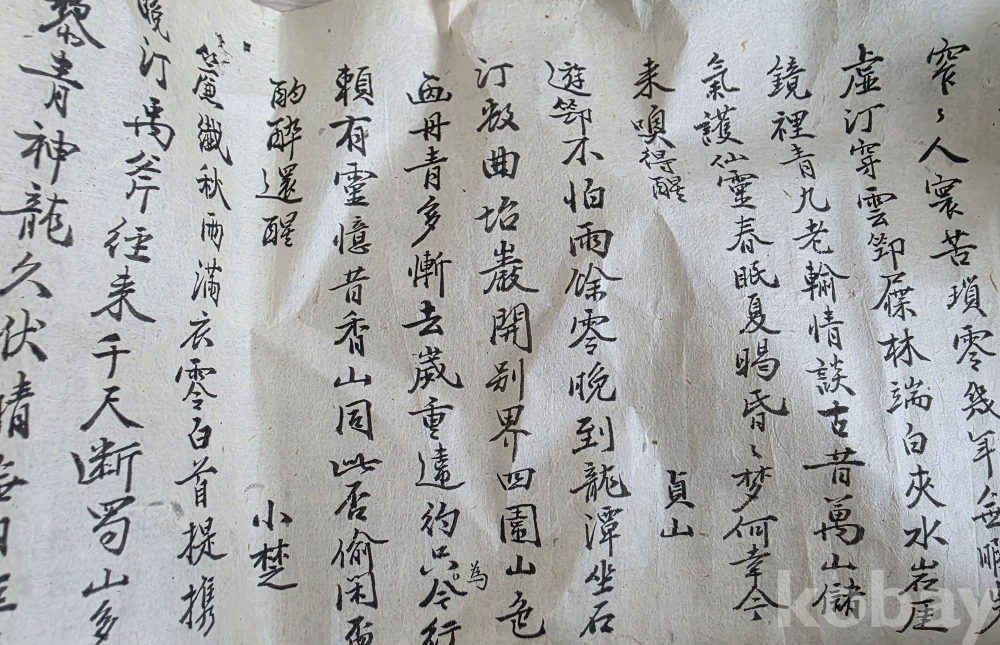 窄〻人寰苦瑣零幾年
虛汀穿雲筇屐林端白夾水岩厓
鏡裡青九老輸情談古昔萬山儲
氣護仙靈春眠夏暍昏〻梦何幸今
来嗅得醒
貞山
遊筇不怕雨餘零晚到龍潭坐石
汀数曲坮巖開别界四圍山色
画丹青多慚去歲重違約只今為行
賴有靈憶昔香山同此否偷閑
酌醉還醒
小楚
簾纖秋雨滿衣零白首提携
晚汀禹斧徑来千天断蜀山多
黎青神龍久伏晴
kobay